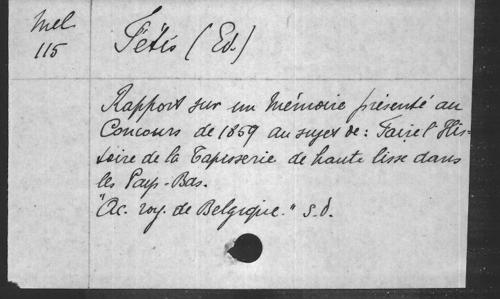 Mel
115
Fétis (Ed.)
Rapport sur un Mémoire présenté au
Concours de 1859 au sujet de : Faire l'His-
toire de la Tapisserie de haute lisse dans
les Pays-Bas.
"Ac. roy. de Belgique." s.d.